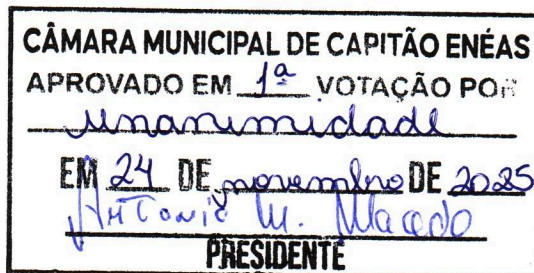 CÂMARA MUNICIPAL DE CAPITÃO ENÉAS
APROVADO EM 1ª VOTAÇÃO POR
unanimidade
EM 24 DE novembro DE 2025
Antonio M. Macedo
PRESIDENTE